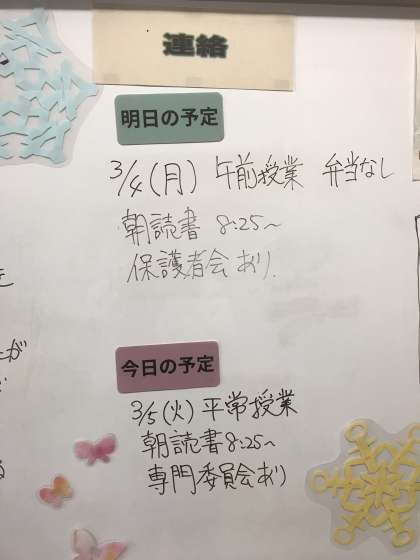 連絡
明日の予定
3/4(月) 午前授業 弁当なし
朝読書 8:25~
保護者会 あり.
今日の予定
3/5(火) 平常授業
朝読書8:25~
専門委員会あり
が